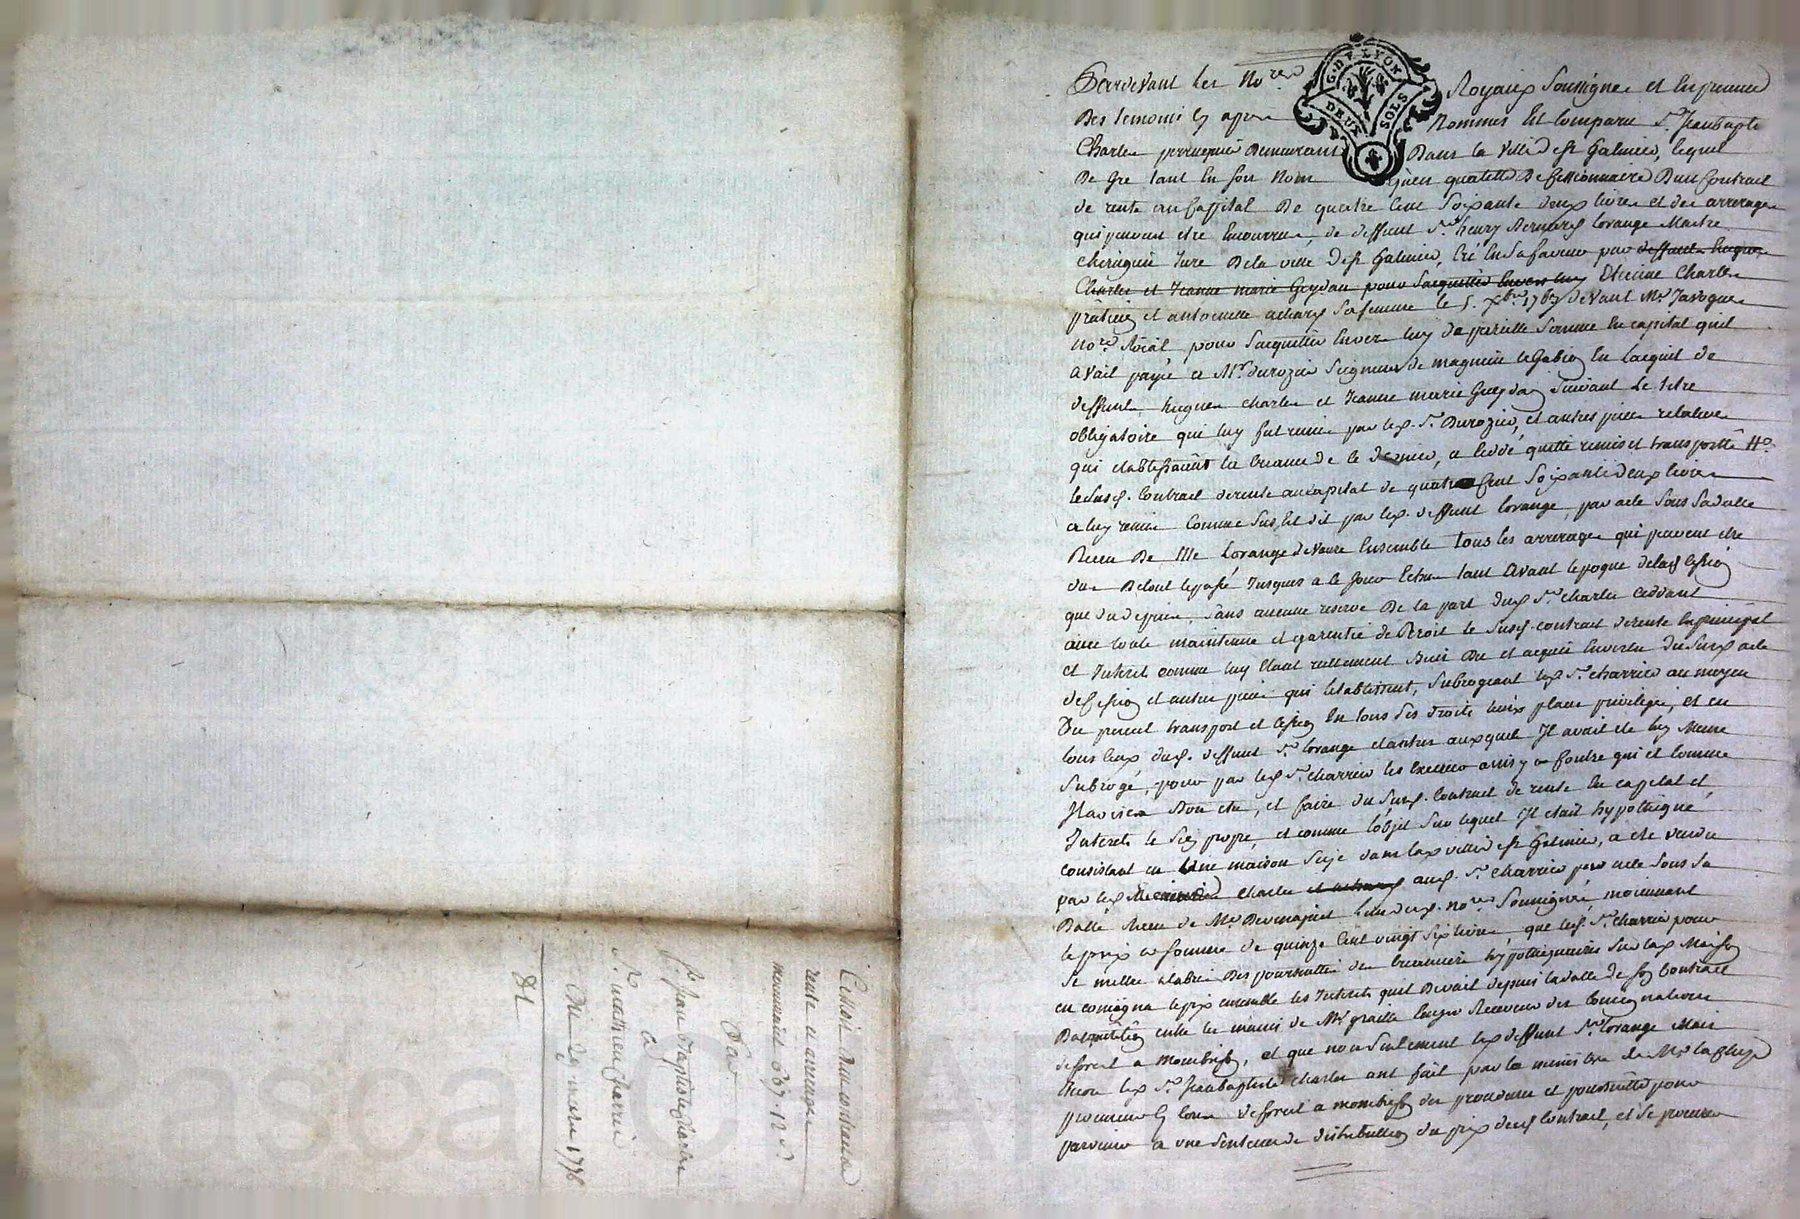 Pardevant les No.res Royaux Soussignes et En presence
Des temoins Cy apres Nommes Est Comparu S.r Jean bapte
Charles perruquier Demeurant Dans la Ville de St Galmier, lequel
De Gre tant En son Nom qu'en qualitté De Cessionnaire D'un Contrait
de rente au Cappital De quatre Cent Soixante deux livres et des arrerages
qui peuvent etre Encourrus, de deffunt S.r henry Bernard lorange Maitre
chirugien Juré De la ville De St Galmier, Créé En sa faveur par deffunts hugues
Charles et Jeanne marie Geydan pour S'acquitter Envers luy Etienne Charles
praticien et antoinette achard Sa femme le 5. Xbre 1767 devant Me Javogues
no.re Roial pour Sacquitter Envers luy de pareille Somme En capital quil
avait payé a Mr. durozier Seigneur de magnieu le Gabion En Lacquit de
deffunts hugues charles et Jeanne marie Gueydan Suivant Le titre
obligatoire qui luy fut remis par led. S.r Durozier, et autres pieces relatives
qui etablissaient la creance de ce dernier, a cédé quitté remis et transportté
le Susd. Contrait de rente au capital de quatre Cent Soixante deux livres
a luy remis Comme Sus Est dit par led. deffunt lorange, par acte Sous Sa datte
Recu De Me Ensemble tous les arrerages qui peuvent etre
dus De tout le passé Jusques a ce Jour Echus tant Avant l'epoque de lad. Cession
que du depuis, Sans aucune reserve De la part dud. S.r Charles Ceddant
avec toute maintenue et garentie de Droit le Susd. contrait de rente En principal
et Interet comme luy Etant reellement Bien Du et acquis En vertu du Susd. acte
de Cession et autres pieces qui letablissent, Subrogeant led. S.r charrier au moyen
Du present transport et Cession En tous Ses droits lieux places privileges, et en
tous Ceux dud. deffunt S.r lorange et autres auxquels Il avait ete luy Meme
Subrogé, pour par led. S.r charrier les Exercer ainsy et Contre qui et Comme
Il avisera Bon etre, et faire du Susd. Contrait de rente En capital et
Interets le Sien propre, et comme l'objet Sur lequel Il etait hypothequé
consistant en Une maison Size dans lad. ville de St Galmier, a ete vendu
par led. Charles aud. S.r charrier par acte Sous Sa
Datte Recu de Me. L'un desd. no.res Soussignés moiennant
le prix et Somme de quinze Cent vingt Six livres, que led. S.r Charrier pour
Se mettre a labri Des poursuittes des Creanciers hypothequaires Sur lad. Maison
en consigna le prix ensemble les Interets quil Devait depuis la datte de Son Contrait
D'acquisition entre les mains de Mr. Receveur des Consignations
de forest a Montbrison, et que non Seulement led. deffunt S.r lorange Mais
Encore led. S.r Jean baptiste charles ont fait par le ministere de Me
procureur En Cour de forest a montbrison des procedures et poursuittes pour
parvenir a une Sentence de distribution du prix dud. Contrait, et Se procurer
G. DE LYON
DEUX SOLS
Cession d'un contrait de
rente et arrerages
montant a 667 12 s
Par
S.r Jean Baptiste charles
a
S.r mathieu charrier
Du 29 mars 1776